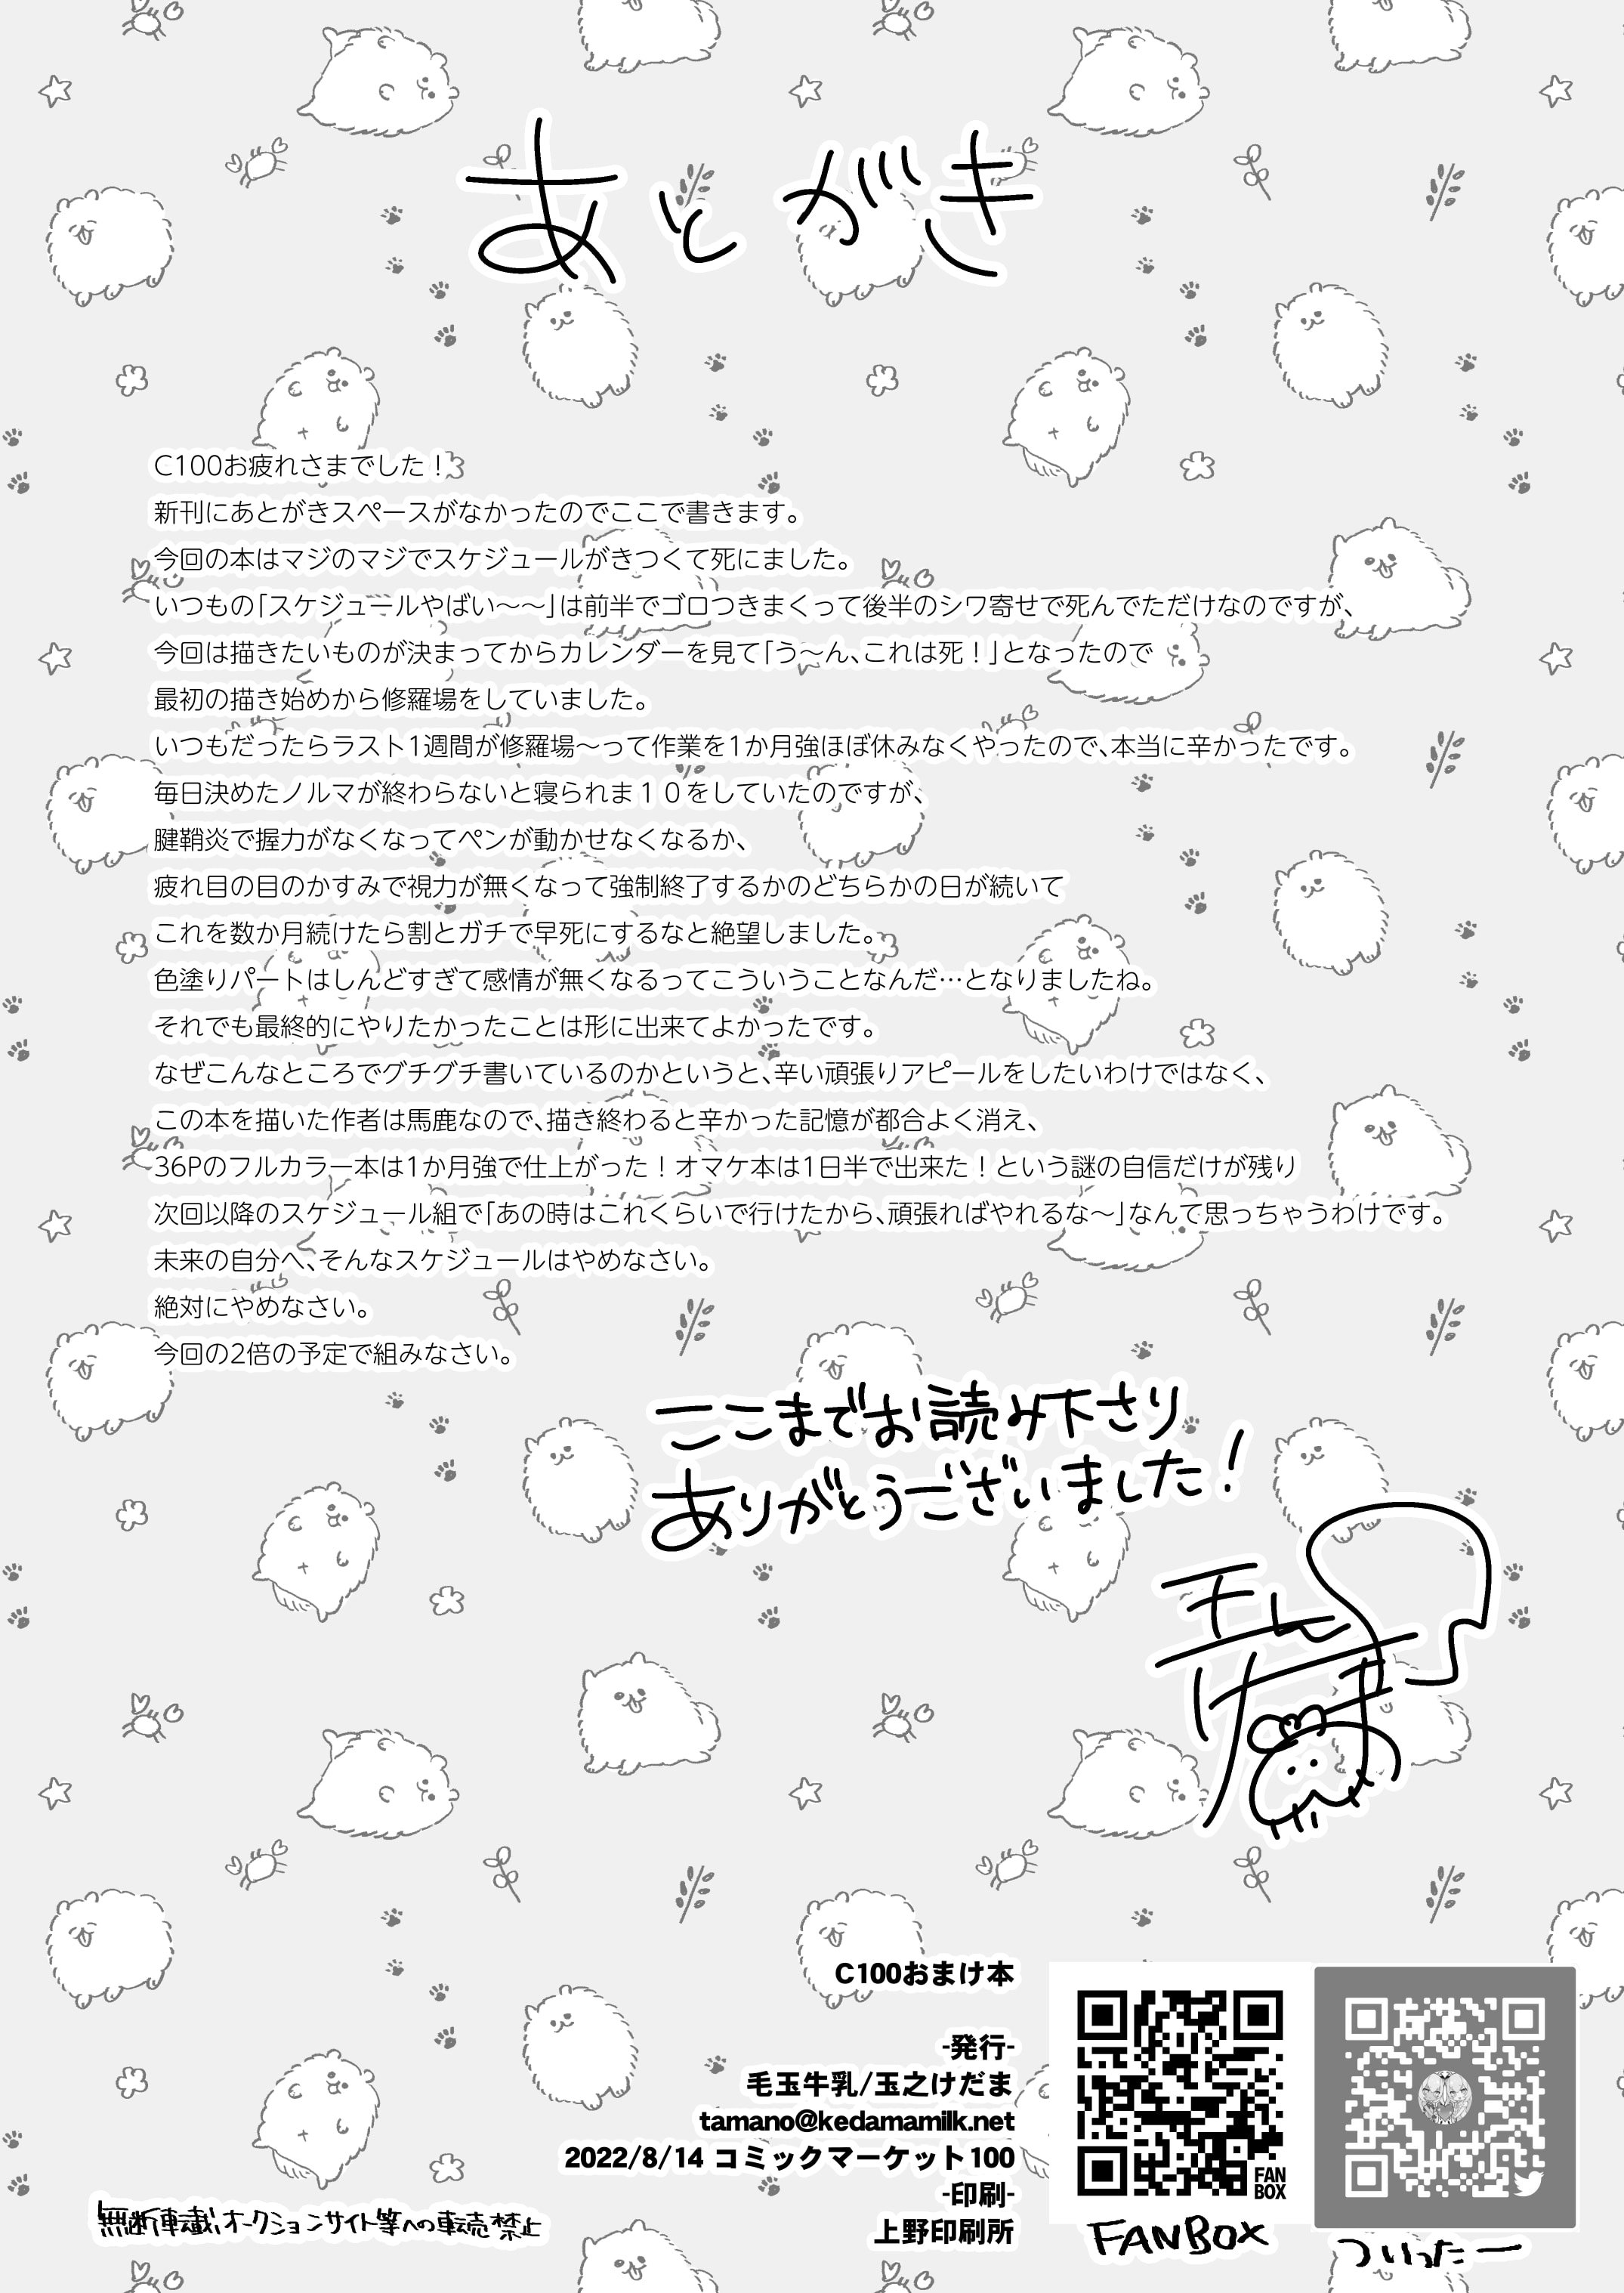 あとがき
C100お疲れさまでした！
新刊にあとがきスペースがなかったのでここで書きます。
今回の本はマジのマジでスケジュールがきつくて死にました。
いつもの「スケジュールやばい～～」は前半でゴロつきまくって後半のシワ寄せで死んでただけなのですが、
今回は描きたいものが決まってからカレンダーを見て「う～ん、これは死！」となったので
最初の描き始めから修羅場をしていました。
いつもだったらラスト1週間が修羅場～って作業を1か月強ほぼ休みなくやったので、本当に辛かったです。
毎日決めたノルマが終わらないと寝られま１０をしていたのですが、
腱鞘炎で握力がなくなってペンが動かせなくなるか、
疲れ目の目のかすみで視力が無くなって強制終了するかのどちらかの日が続いて
これを数か月続けたら割とガチで早死にするなと絶望しました。
色塗りパートはしんどすぎて感情が無くなるってこういうことなんだ…となりましたね。
それでも最終的にやりたかったことは形に出来てよかったです。
なぜこんなところでグチグチ書いているのかというと、辛い頑張りアピールをしたいわけではなく、
この本を描いた作者は馬鹿なので、描き終わると辛かった記憶が都合よく消え、
36Pのフルカラー本は1か月強で仕上がった！オマケ本は1日半で出来た！という謎の自信だけが残り
次回以降のスケジュール組で「あの時はこれくらいで行けたから、頑張ればやれるな～」なんて思っちゃうわけです。
未来の自分へ、そんなスケジュールはやめなさい。
絶対にやめなさい。
今回の2倍の予定で組みなさい。
ここまでお読み下さり
ありがとうございました！
C100おまけ本
-発行-
毛玉牛乳/玉之けだま
tamano@kedamamilk.net
2022/8/14 コミックマーケット100
-印刷-
上野印刷所
無断転載、オークションサイト等への転売禁止
FAN
BOX
FANBOX
ついったー